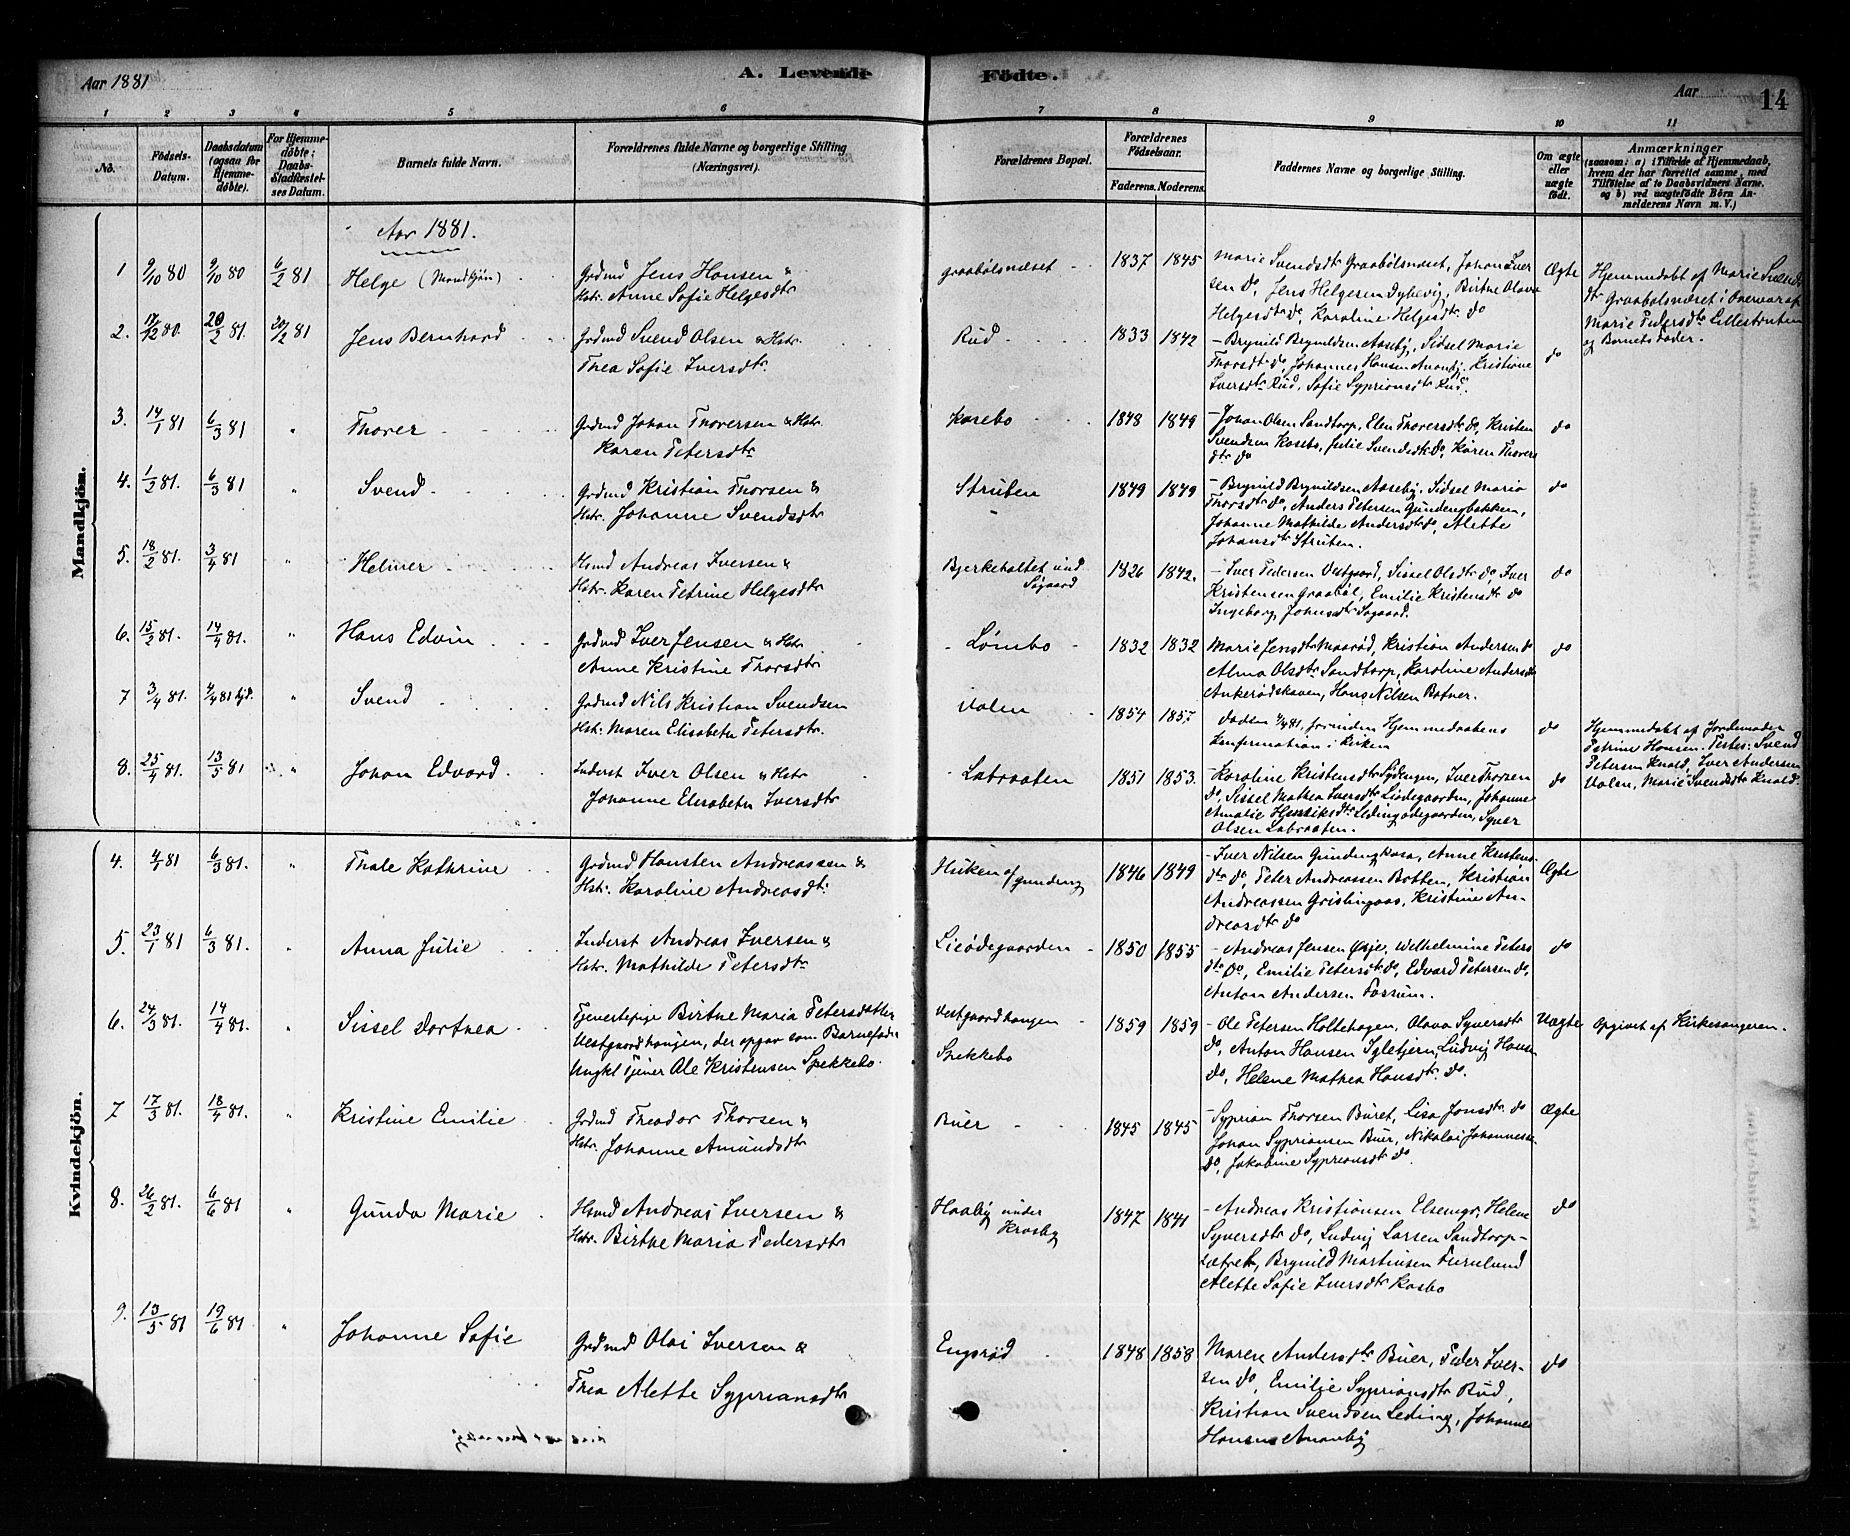 Aar 1881
A. Levende Fødte.
Aar 14
1 2 3 4 5 6 7 8 9 10 11
No.
Fødsels-Datum.
Daabsdatum (ogsaa for Hjemmedøbte).
For Hjemmedøbte: Daabs Stadfæstelses Datum.
Barnets fulde Navn.
Forældrenes fulde Navne og borgerlige Stilling (Næringsvei).
Forældrenes Bopæl.
Forældrenes Fødselsaar.
Faderens. Moderens.
Faddernes Navne og borgerlige Stilling.
Om ægte eller uægte født.
Anmærkninger
(saasom: a) i Tilfælde af Hjemmedaab, hvem der har forrettet samme, med Tilføielse af to Daabsvidners Navne, og b) ved uægtefødte Børn Anmelderens Navn m. V.)
Mandkjön.
Aar 1881.
1 9/10 80 9/10 80 6/2 81 Helge (Mandkjøn)
Grdmd Jens Hansen &
Hstr. Anne Sofie Helgesdtr
Graabølsnæset 1837 1845
Marie Svendsdtr Graabølsnæset, Johan Iver
sen do, Jens Helgesen Dybevig, Birthe Olava
Helgesdtr do, Karoline Helgesdtr do
Ægte
Hjemmedøbt af Marie Svends
dtr Graabølsnæset i Overvær af
Marie Pedersdtr Lillestruten
og Barnets Fader.
2. 17/12 80. 20/2 81. 20/2 81 Jens Bernhard
Grdmd Svend Olsen & Hstr.
Thea Sofie Iversdtr
Rud 1833 1842
– Brynild Brynildsen Aaseby, Sidsel Marie
Thorsdtr do, Johannes Hansen Ananby, Kristiane
Iversdtr Rud, Sofie Syprionsdtr Rud.
do
3. 14/1 81 6/3 81 " Thorer
Grdmd Johan Thorersen & Hstr.
Karen Petersdtr
Kasebo 1848 1849
– Johan Olsen Sandtorp, Elen Thorersdtr do, Kristen
Svendsen Kasebo, Julie Svendsdtr do, Karen Thorers
dtr do
do
4. 1/2 81. 6/3 81 " Svend
Grdmd Kristian Thorsen &
Hstr. Johanne Svendsdtr
Struten 1849 1849
– Brynild Brynildsen Aaseby, Sidsel Maria
Thorsdtr do, Anders Petersen Gundengbakken,
Johanne Mathilde Andersdtr do, Alette
Johansdtr Struten.
do
5. 18/2 81. 3/4 81 " Helmer
Hsmd Andreas Iversen &
Hstr. Karen Petrine Helgesdtr
Bjerkeholtet und
Søgaard
1826 1842.
– Iver Pedersen Vestgaard, Sissel Olsdtr do, Iver
Kristensen Graabøl, Emilie Kristensdtr do
Ingeborg Johnsdtr Søgaard.
do
6. 15/2 81. 14/4 81. " Hans Edvin
Grdmd Iver Jensen & Hstr
Anne Kristine Thorsdtr
Lømbo 1832 1832
Marie Jensdtr Maarød, Kristian Andersen do
Alma Olsdtr Sandtorp, Karoline Andersdtr
Ankerødskoven, Hans Nilsen Botner.
do
7 3/4 81. 4/4 81 hjd. " Svend
Grdmd Nils Kristian Svendsen
Hstr. Maren Elisabeth Petersdtr.
Valen 1854 1857
døden 4/4 81, forinden Hjemmedaabens
Konfirmation i Kirken
do
Hjemmedøbt af Jordemoder
Petrine Hansen. Testes: Svend
Petersen Knold, Iver Andersen
Valen, Marie Svendsdtr Knold.
8. 25/4 81. 13/5 81 " Johan Edvard
Inderst Iver Olsen & Hstr
Johanne Elisabeth Iversdtr
Labraaten 1851 1853.
– Karoline Kristensdtr Sydengen, Iver Thorsen
do, Sissel Mathea Iversdtr Liødegaarden, Johanne
Amalie Henriksdtr Ledingødegaarden, Syver
Olsen Labraaten.
do
Kvindekjön.
4. 4/1 81 6/3 81. " Thale Kathrine
Grdmd Hansten Andreassen &
Hstr. Karoline Andreasdtr
Huken af Gundeng 1846 1849
– Iver Nilsen Gundengkasa, Anne Kristens-
dtr do, Peter Andreassen Botten, Kristian
Andreassen Grislingaas, Kristine An-
dreasdtr do
Ægte
5. 23/1 81 6/3 81. " Anna Julie
Inderst Andreas Iversen &
Hstr. Mathilde Petersdtr
Lieødegaarden 1850 1855
– Andreas Jensen Øsje, Welhelmine Peters
dtr do, Emilie Petersdtr do, Edvard Petersen do,
Anton Andersen Fossum.
do
6. 24/3 81. 14/4 81. " Sissel Dorthea
Tjenestepige Birthe Maria Petersdatter
Vestgaardhaugen, der opgav som Barnefader
Ungkl Tjener Ole Kristensen Spekkebo.
Vestgaardhaugen
Spekkebo
1859 1859
– Ole Petersen Holtehagen, Olava Syversdtr
do, Anton Hansen Igletjern, Ludvig Hansen
do, Helene Mathea Hansdtr do.
Uægte
Opgivet af Kirkesangeren.
7 17/3 81. 18/4 81. " Kristine Emilie
Grdmd Theodor Thorsen &
Hstr. Johanne Amundsdtr
Buer 1845 1845
– Syprian Thorsen Buret, Lisa Jonsdtr do
Johan Syprionsen Buer, Nikolai Johannesse
do, Jakobine Syprionsdtr do.
Ægte
8. 26/2 81. 6/6 81 " Gunda Marie
Hsmd Andreas Iversen &
Hstr. Birthe Maria Pedersdtr
Haaby under
Krosby
1847 1841
– Andreas Kristiansen Elseng, Helene
Syversdtr do, Ludvig Larsen Sandtorp-
sætret, Brynild Martinsen Furulund
Alette Sofie Iversdtr Kasbo
do
9. 13/5 81 19/6 81 " Johanne Sofie
Grdmd Olai Iversen &
Thea Alette Syprionsdtr
Engsrød 1848 1858
Maren Andersdtr Buer, Peder Iver-
sen do, Emilie Syprionsdtr Rud,
Kristian Svendsen Leding, Johannes
Hansen Ananby
do